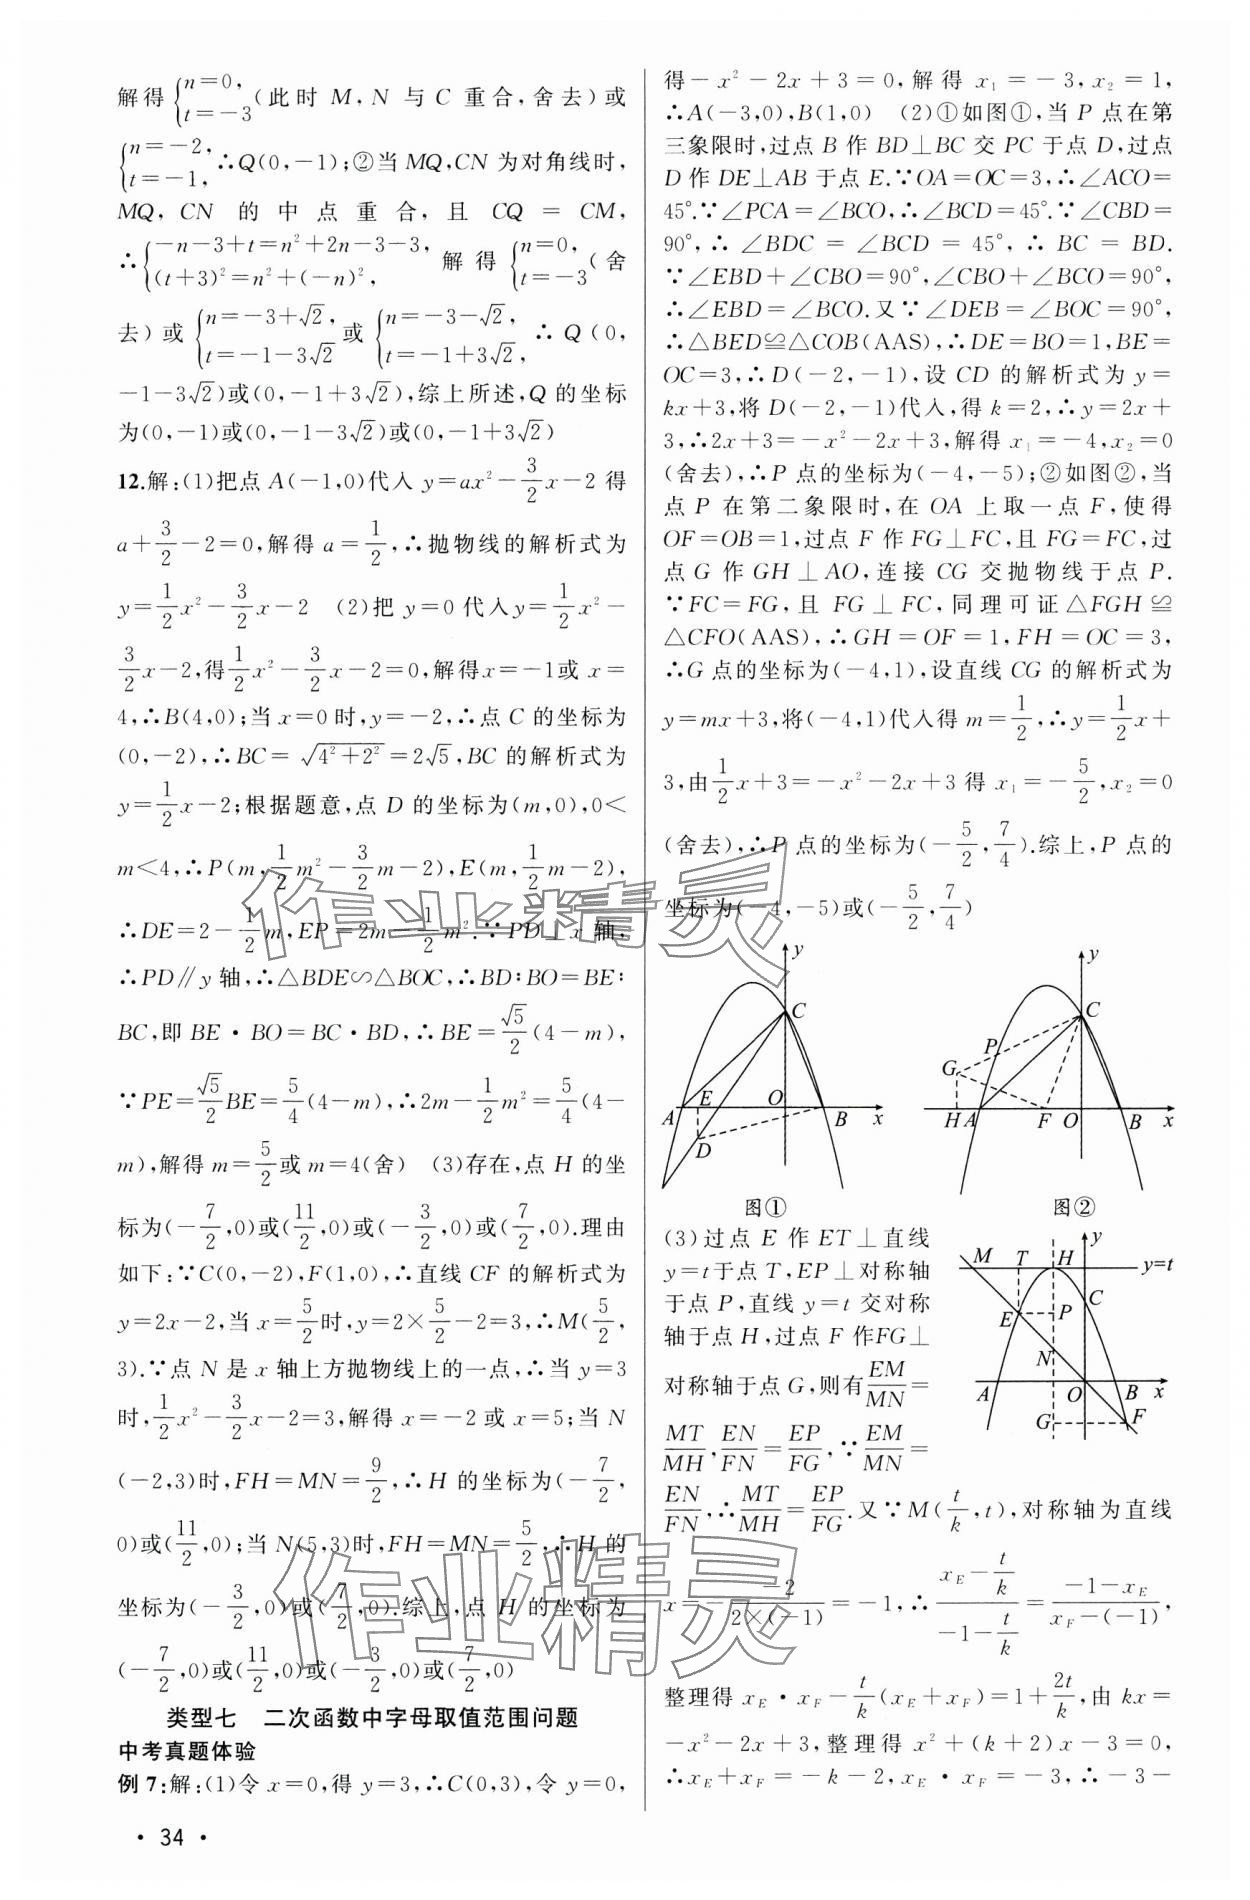 解得{n=0, t=-3(此时 M,N 与 C 重合,舍去)或
{n=-2, t=-1, ∴Q(0,-1);②当MQ,CN为对角线时,
MQ, CN 的中点重合,且 CQ = CM,
∴{-n-3+t=n²+2n-3-3, (t+3)²=n²+(-n)², 解得{n=0, t=-3(舍
去)或{n=-3+√2, t=-1-3√2或{n=-3-√2, t=-1+3√2, ∴Q(0,
-1-3√2)或(0,-1+3√2),综上所述,Q 的坐标
为(0,-1)或(0,-1-3√2)或(0,-1+3√2)
12.解:(1)把点 A(-1,0)代入 y=ax²-3/2x-2得
a+3/2-2=0,解得 a=1/2,∴抛物线的解析式为
y=1/2x²-3/2x-2 (2)把 y=0代入y=1/2x²-
3/2x-2,得1/2x²-3/2x-2=0,解得x=-1或 x=
4,∴B(4,0);当x=0时,y=-2,∴点 C 的坐标为
(0,-2),∴BC=√(4²+2²)=2√5,BC 的解析式为
y=1/2x-2;根据题意,点 D 的坐标为(m,0),0<
m<4,∴P(m,1/2m²-3/2m-2),E(m,1/2m-2),
∴DE=2-1/2m,EP=2m-1/2m².∵PD⊥x 轴,
∴PD∥y轴,∴△BDE∽△BOC,∴BD:BO=BE:
BC,即 BE·BO=BC·BD,∴BE=√5/2(4-m),
∵PE=√5/2BE=5/4(4-m),∴2m-1/2m²=5/4(4-
m),解得m=5/2或m=4(舍) (3)存在,点 H 的坐
标为(-7/2,0)或(11/2,0)或(-3/2,0)或(7/2,0).理由
如下:∵C(0,-2),F(1,0),∴直线CF的解析式为
y=2x-2,当x=5/2时,y=2×5/2-2=3,∴M(5/2,
3).∵点 N 是 x 轴上方抛物线上的一点,∴当 y=3
时,1/2x²-3/2x-2=3,解得 x=-2或 x=5;当 N
(-2,3)时,FH=MN=9/2,∴H 的坐标为(-7/2,
0)或(11/2,0);当N(5,3)时,FH=MN=5/2,∴H 的
坐标为(-3/2,0)或(7/2,0).综上,点 H 的坐标为
(-7/2,0)或(11/2,0)或(-3/2,0)或(7/2,0)
类型七 二次函数中字母取值范围问题
中考真题体验
例7:解:(1)令 x=0,得 y=3,∴C(0,3),令 y=0,
· 34 ·
得-x²-2x+3=0,解得 x₁=-3,x₂=1,
∴A(-3,0),B(1,0) (2)①如图①,当 P 点在第
三象限时,过点 B 作 BD⊥BC 交 PC 于点 D,过点
D作 DE⊥AB 于点 E.∵OA=OC=3,∴∠ACO=
45°.∵∠PCA=∠BCO,∴∠BCD=45°.∵∠CBD=
90°,∴∠BDC=∠BCD=45°,∴BC=BD.
∵∠EBD+∠CBO=90°,∠CBO+∠BCO=90°,
∴∠EBD=∠BCO.又∵∠DEB=∠BOC=90°,
∴△BED≌△COB(AAS),∴DE=BO=1,BE=
OC=3,∴D(-2,-1),设 CD 的解析式为 y=
kx+3,将D(-2,-1)代入,得k=2,∴y=2x+
3,∴2x+3=-x²-2x+3,解得 x₁=-4,x₂=0
(舍去),∴P 点的坐标为(-4,-5);②如图②,当
点 P 在第二象限时,在 OA 上取一点 F,使得
OF=OB=1,过点 F 作 FG⊥FC,且 FG=FC,过
点 G 作 GH⊥AO,连接 CG 交抛物线于点 P.
∵FC=FG,且 FG⊥FC,同理可证△FGH≌
△CFO(AAS),∴GH=OF=1,FH=OC=3,
∴G 点的坐标为(-4,1),设直线CG的解析式为
y=mx+3,将(-4,1)代入得 m=1/2,∴y=1/2x+
3,由1/2x+3=-x²-2x+3 得 x₁=-5/2,x₂=0
(舍去),∴P 点的坐标为(-5/2,7/4).综上,P 点的
坐标为(-4,-5)或(-5/2,7/4)
y C A E O B x D
图①
y C P G H A F O B x
图②
(3)过点 E 作 ET⊥直线
y=t于点T,EP⊥对称轴
于点P,直线 y=t 交对称
轴于点H,过点 F 作FG⊥
对称轴于点G,则有EM/MN=
MT/MH,EN/FN=EP/FG,∵EM/MN=
EN/FN,∴MT/MH=EP/FG.又∵M(t/k,t),对称轴为直线
M T H y y=t C E P N A O B x G F
x-2/(2×(-1))=-1,∴(x_E-t/k)/(-1-t/k)=(-1-x_E)/(x_F-(-1)),
整理得 x_E·x_F-t/k(x_E+x_F)=1+2t/k,由 kx=
-x²-2x+3,整理得 x²+(k+2)x-3=0,
∴x_E+x_F=-k-2,x_E·x_F=-3,∴-3-
作业精灵
作业精灵